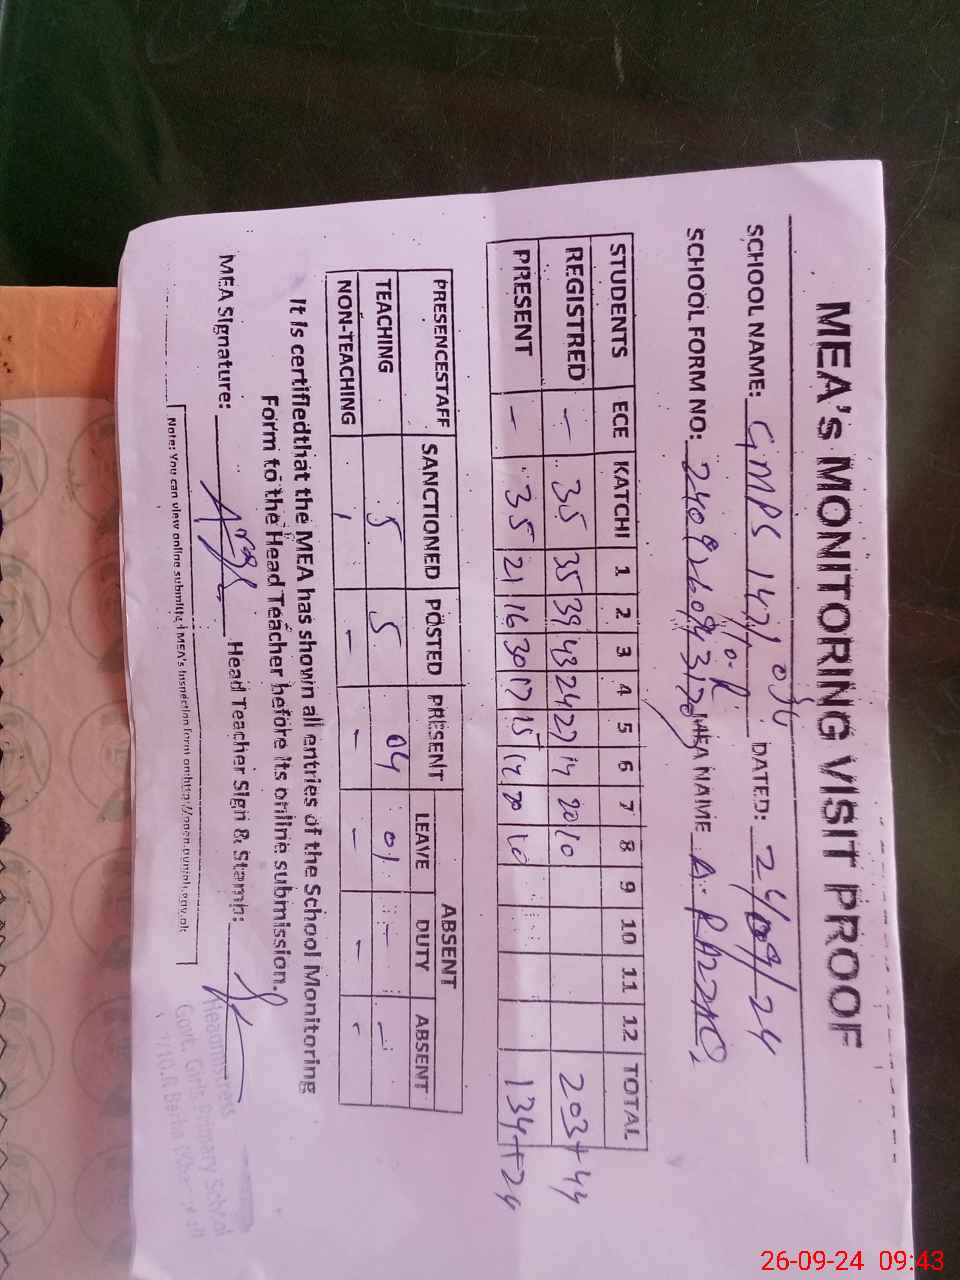 MEA's MONITORING VISIT PROOF
SCHOOL NAME: GMPS 147/10-R DATED: 24/09/24
SCHOOL FORM NO: MEA NAME A. RAZZAQ
STUDENTS ECE KATCHI 1 2 3 4 5 6 7 8 9 10 11 12 TOTAL
REGISTRED - 35 35 39 43 24 27 14 20 10 203+44
PRESENT - 35 21 16 30 17 15 14 10 134+24
PRESENCESTAFF SANCTIONED POSTED PRESENT ABSENT
LEAVE DUTY ABSENT
TEACHING 5 5 04 01 - -
NON-TEACHING - - - - -
It is certifiedthat the MEA has shown all entries of the School Monitoring
Form to the Head Teacher before its online submission.
MEA Signature: Head Teacher Sign & Stamp:
Headmistress
Govt. Girls Primary School
Note: You can view online submitted MEA's Inspection form on http://open.punjab.gov.pk
26-09-24 09:43